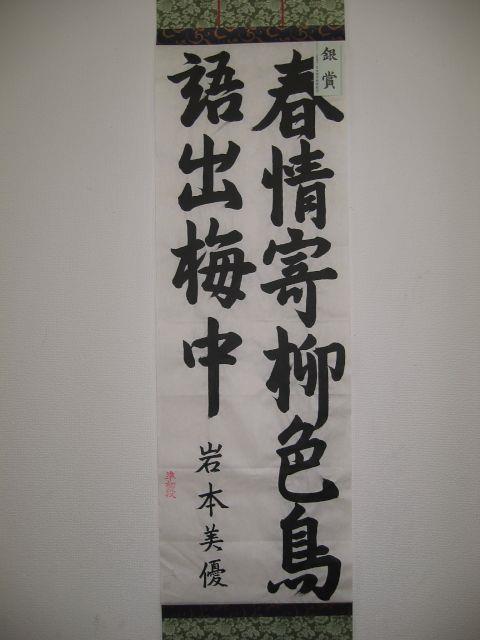 春情寄柳色鳥
語出梅中
岩本美優
準初段
銀賞